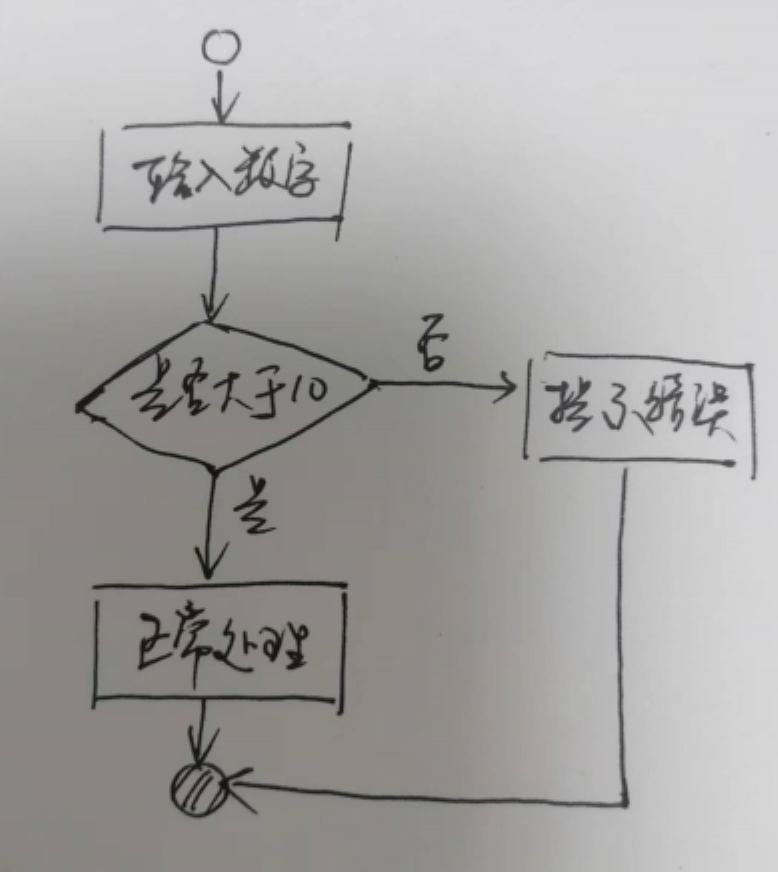 输入数字
是否大于10
否
提示错误
是
正常处理